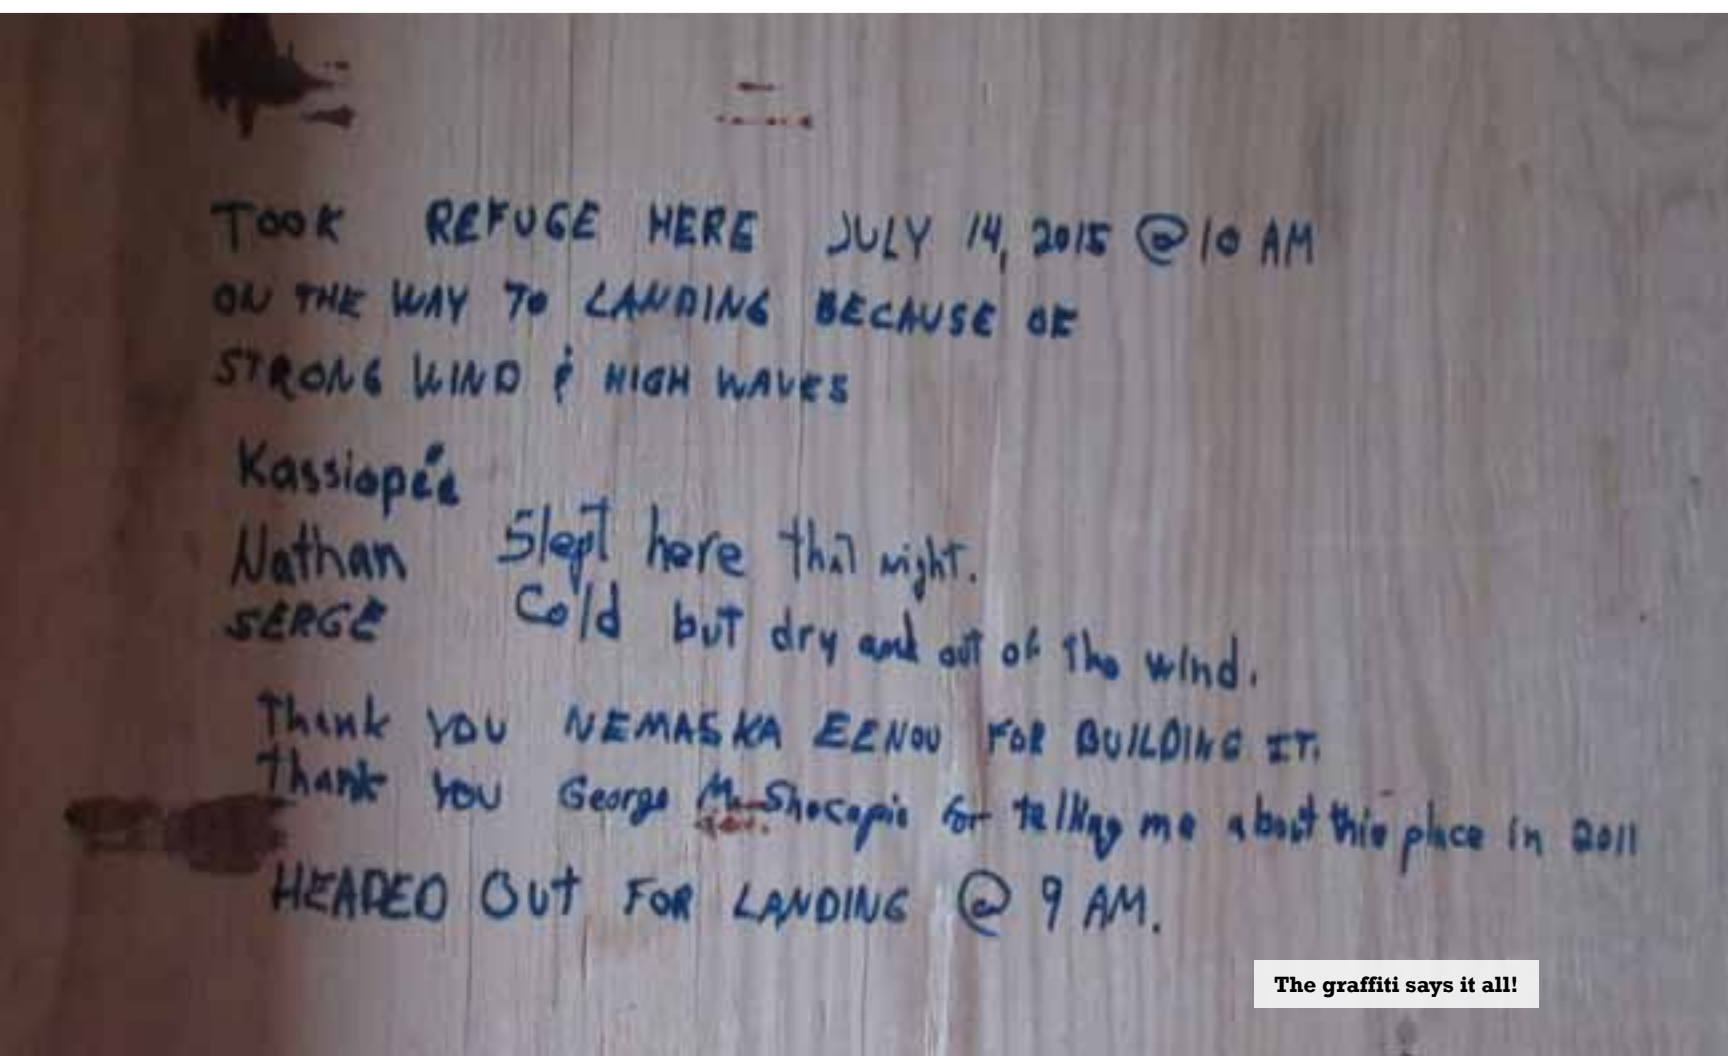 TOOK REFUGE HERE JULY 14, 2015 @ 10 AM
ON THE WAY TO LANDING BECAUSE OF
STRONG WIND & HIGH WAVES
Kassiopée
Nathan Slept here that night.
SERGE Cold but dry and out of the wind.
Thank YOU NEMASKA EENOU FOR BUILDING IT.
Thank YOU George Shecapio for telling me about this place in 2011
HEADED OUT FOR LANDING @ 9 AM.
The graffiti says it all!